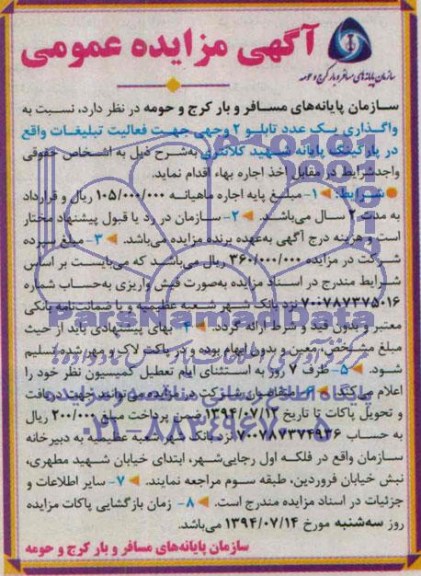 آگهی مزایده عمومی
سازمان پایانه‌های مسافر و بار کرج و حومه
سازمان پایانه‌های مسافر و بار کرج و حومه در نظر دارد، نسبت به
واگذاری یک عدد تابلو ۲ وجهی جهت فعالیت تبلیغات واقع
در پارکینگ پایانه شهید کلانتری به‌شرح ذیل به اشخاص حقوقی
واجدشرایط در مقابل اخذ اجاره بهاء اقدام نماید.
شرایط: ۱- مبلغ پایه اجاره ماهیانه ۱۰۵/۰۰۰/۰۰۰ ریال و قرارداد
به مدت ۲ سال می‌باشد. ۲- سازمان در رد یا قبول پیشنهاد مختار
است و هزینه درج آگهی به‌عهده برنده مزایده می‌باشد. ۳- مبلغ سپرده
شرکت در مزایده ۳۶۰/۰۰۰/۰۰۰ ریال می‌باشد که می‌بایست بر اساس
شرایط مندرج در اسناد مزایده به‌صورت فیش واریزی به‌حساب شماره
۷۰۰۷۸۷۳۷۵۰۱۶ نزد بانک شهر شعبه عظیمیه و یا ضمانت‌نامه بانکی
معتبر و بدون قید و شرط ارائه گردد. ۴- بهای پیشنهادی باید از حیث
مبلغ مشخص، معین و بدون ابهام بوده و در پاکت لاک و مهر شده تسلیم
شود. ۵- ظرف ۷ روز به استثنای ایام تعطیل کمیسیون نظر خود را
اعلام می‌کند. ۶- متقاضیان شرکت در مزایده می‌توانند جهت دریافت
و تحویل پاکات تا تاریخ ۱۳۹۴/۰۷/۱۲ ضمن پرداخت مبلغ ۲۰۰/۰۰۰ ریال
به حساب ۷۰۰۷۸۷۳۷۴۹۳۶ نزد بانک شهر شعبه عظیمیه به دبیرخانه
سازمان واقع در فلکه اول رجایی‌شهر، ابتدای خیابان شهید مطهری،
نبش خیابان فروردین، طبقه سوم مراجعه نمایند. ۷- سایر اطلاعات و
جزئیات در اسناد مزایده مندرج است. ۸- زمان بازگشایی پاکات مزایده
روز سه‌شنبه مورخ ۱۳۹۴/۰۷/۱۴ می‌باشد.
سازمان پایانه‌های مسافر و بار کرج و حومه
ParsNamadData
۰۲۱-۸۸۳۴۹۶۷۰-۵